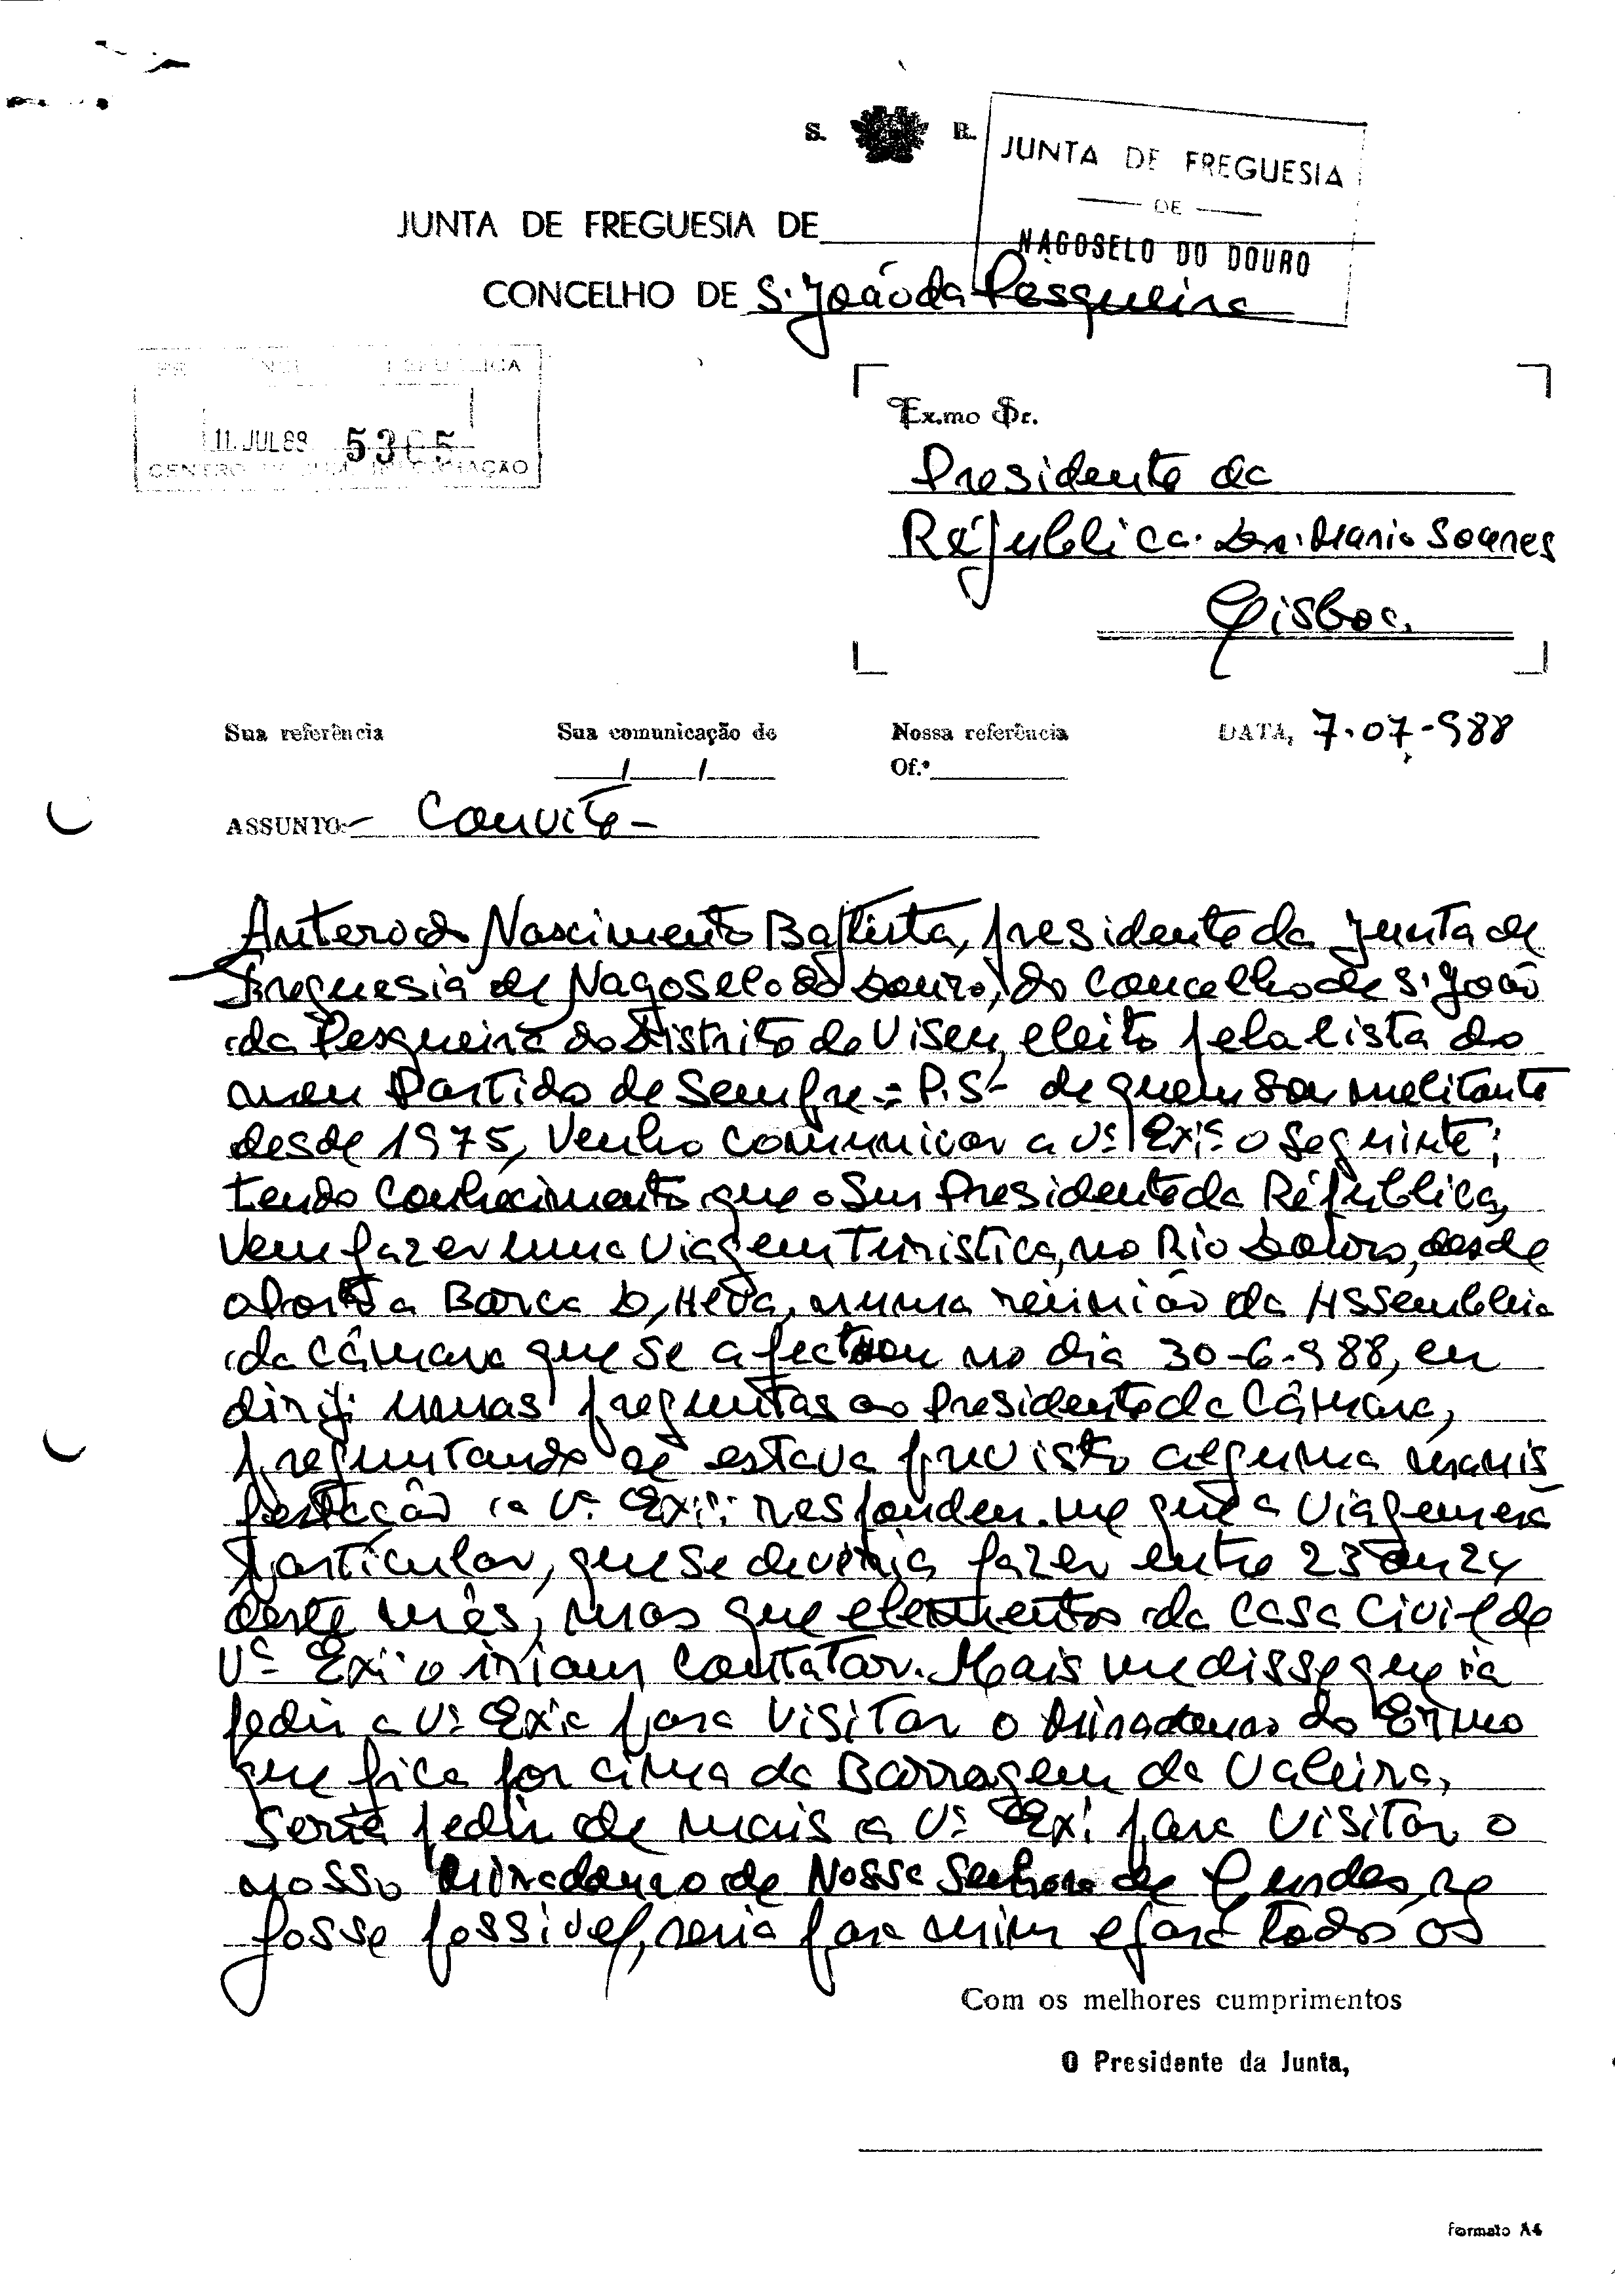 S. R.
JUNTA DE FREGUESIA
DE
NAGOSELO DO DOURO
JUNTA DE FREGUESIA DE
CONCELHO DE S. João da Pesqueira
11. JUL 88
Ex.mo Sr.
Presidente da
Républica. Dr. Mario Soares
Lisboa.
Sua referência Sua comunicação de Nossa referência DATA, 7-07-988
/ / Of.º
ASSUNTO:- Convite-
Antero do Nascimento Baptista, presidente da junta de
Freguesia de Nagoselo do Douro, do concelho de S. João
da Pesqueira do Distrito de Viseu, eleito pela lista do
meu Partido de Sempre = P.S- de quem Sou melitante
desde 1975, Venho comunicar a Vª Exiª o Seguinte;
tendo conhecimento que o Sur Presidente da Républica,
Vem fazer uma viagem Turistica, no Rio Douro, desde
o Porto a Barca D, Alva, numa reunião da Assembleia
da Câmara que se afectuou no dia 30-6-988, eu
dirigi umas preguntas ao Presidente da Câmara,
preguntando se estava previsto alguma manis
festação a Vª Exiª: respondeu-me que a Viagem era
particular, que se deveria fazer entre 23 ou 24
deste mês, mas que elementos da Casa Civil de
Vª Exiª o iriam contatar. Mais me disse que ia
pedir a Vª Exia para Visitar o Miradouro do Ermo
que fica por cima da Barragem da Valeira,
Seria pedir de mais a Vª Exª para Visitar o
nosso Miradouro de Nossa Senhora de Lurdes, se
fosse possivel, seria para mim e para todos os
Com os melhores cumprimentos
O Presidente da Junta,
Formato A4